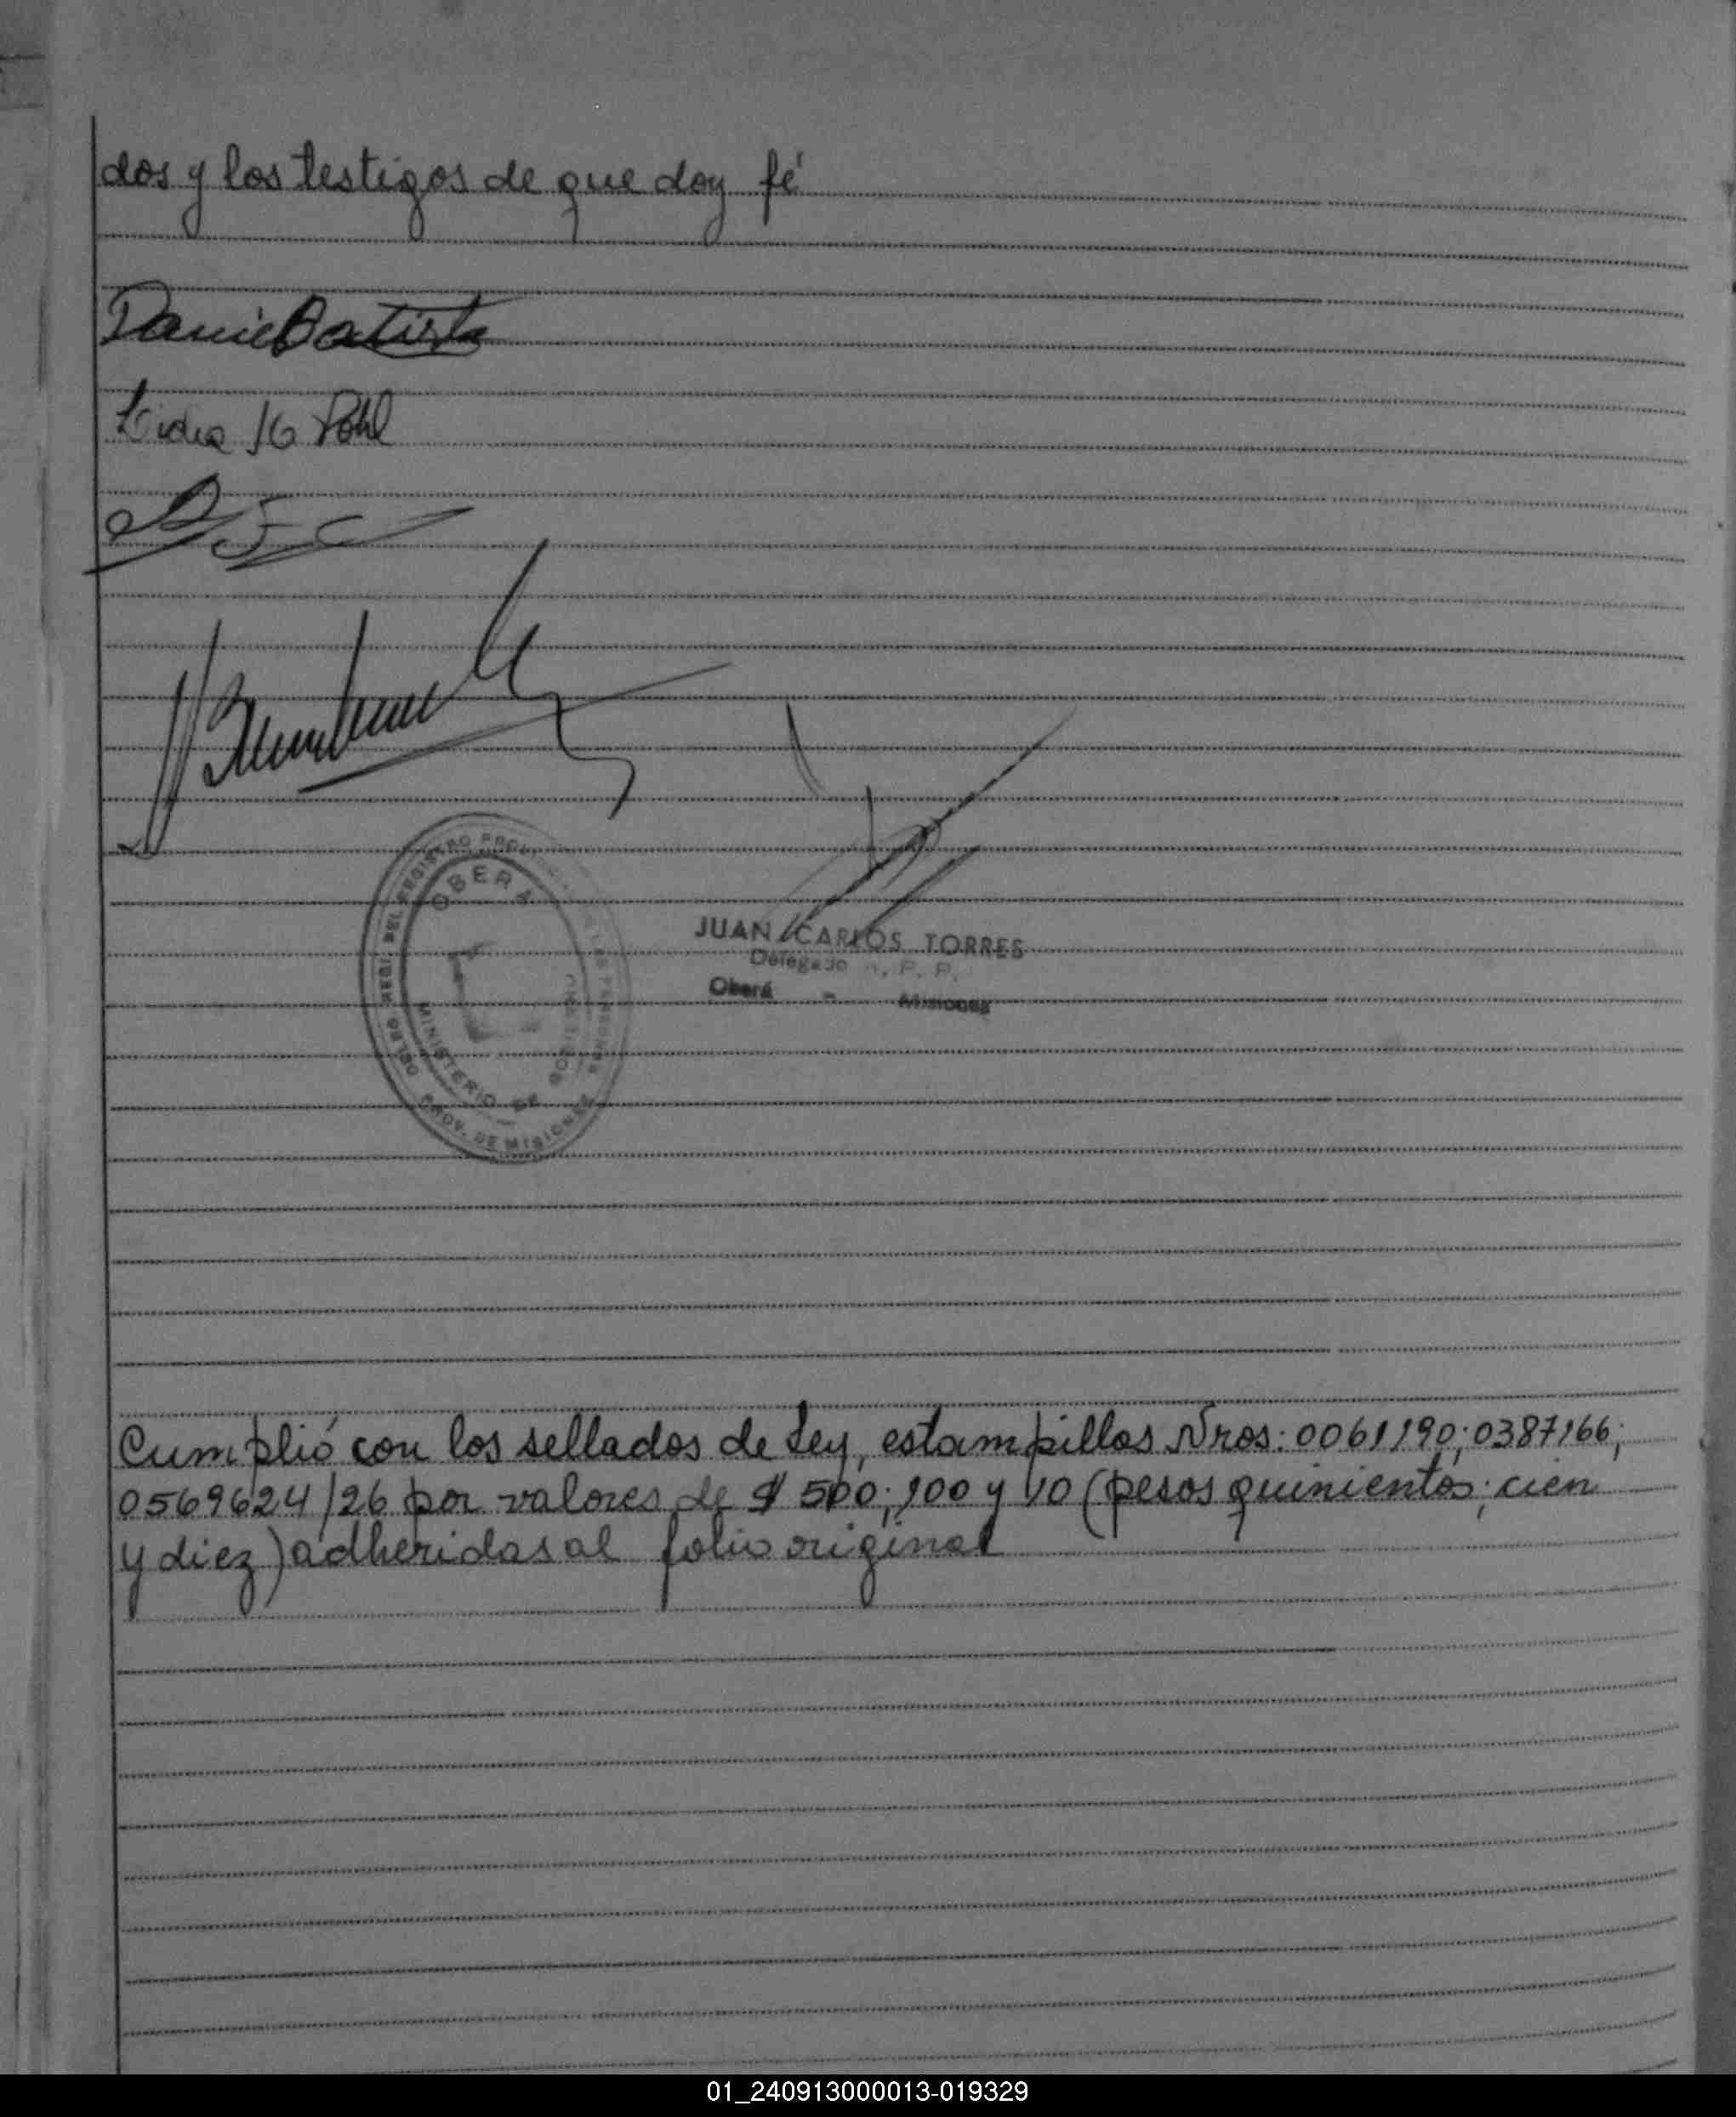 dos y los testigos de que doy fé
Daniel Batista
Lidia Pohl
OBERÁ
MINISTERIO DE GOBIERNO
PROV. DE MISIONES
JUAN CARLOS TORRES
Delegado R. P. P.
Oberá - Misiones
Cumplió con los sellados de Ley, estampillas Nros: 0061190; 0387166;
0569624/26 por valores de $ 500; 100 y 10 (pesos quinientos; cien
y diez) adheridas al folio original
01_240913000013-019329